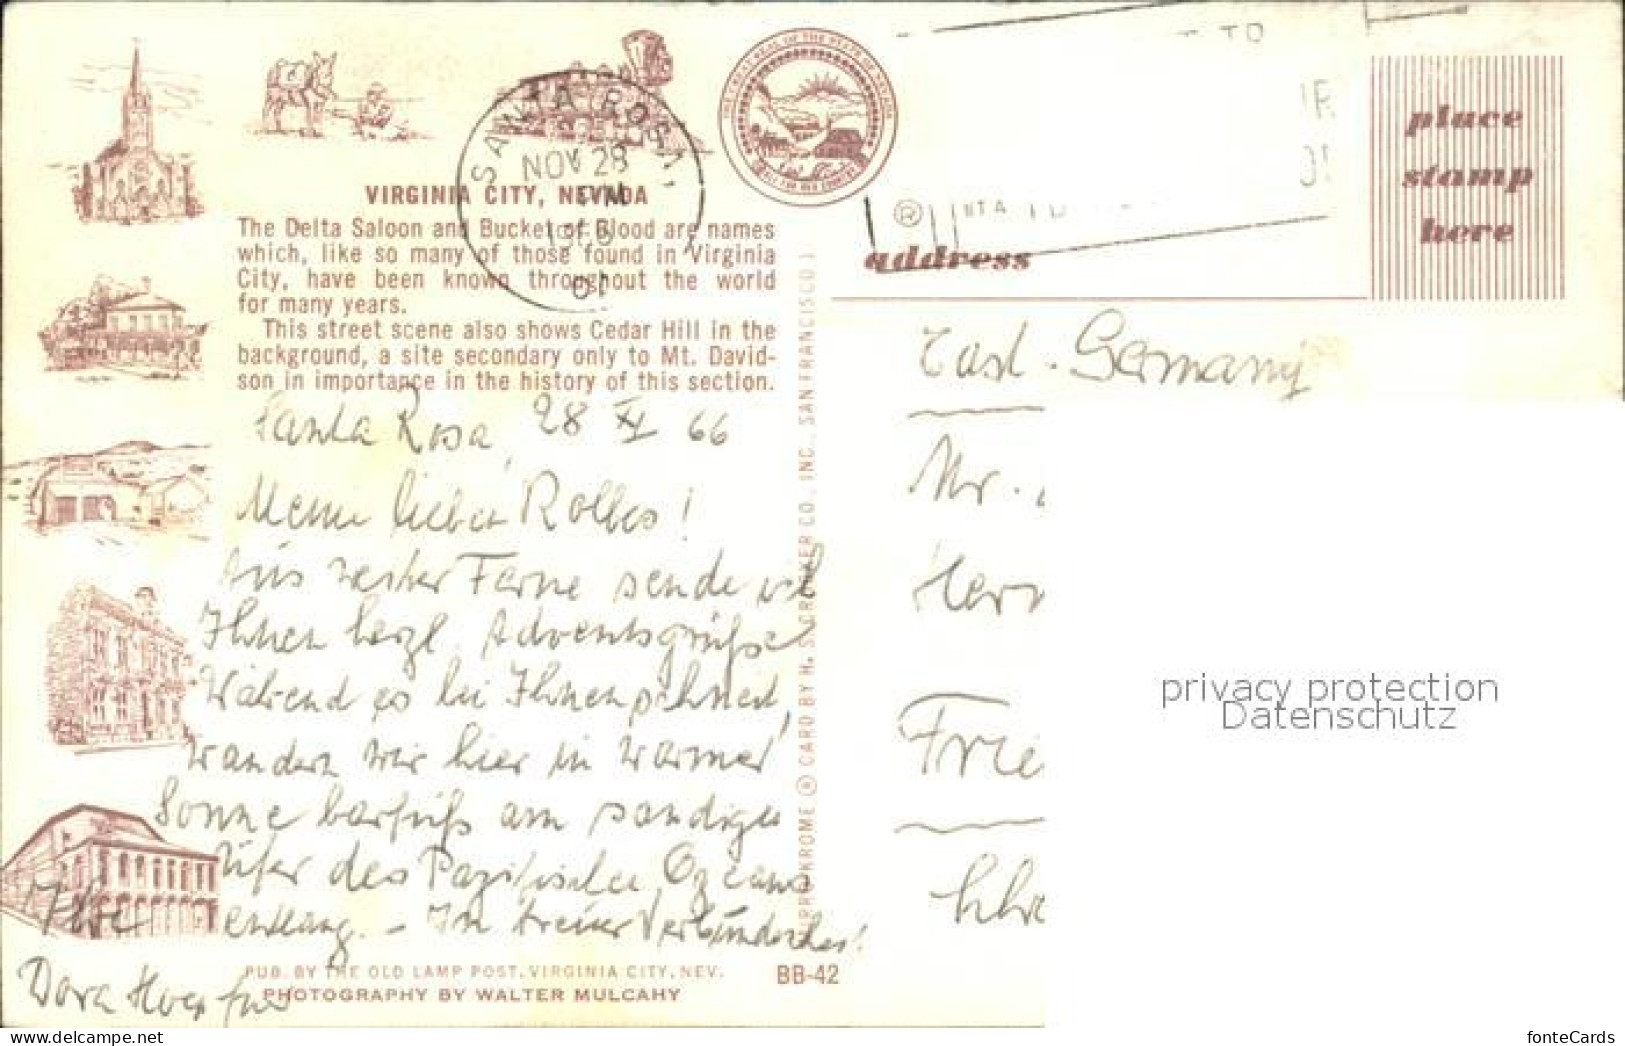 SANTA ROSA,
NOV 28
PM
VIRGINIA CITY, NEVADA
The Delta Saloon and Bucket of Blood are names
which, like so many of those found in Virginia
City, have been known throughout the world
for many years.
This street scene also shows Cedar Hill in the
background, a site secondary only to Mt. David-
son in importance in the history of this section.
Santa Rosa, 28 XI 66
Meine lieben Rolles!
Aus weiter Ferne sende ich
Ihnen herzl. Adventsgrüße
Während es bei Ihnen schneit,
wandern wir hier in warmer
Sonne barfuß am sandigen
Ufer des Pazifischen Ozeans
entlang. - In treuer Verbundenheit!
Ihre
Dora
PUB. BY THE OLD LAMP POST, VIRGINIA CITY, NEV.
BB-42
PHOTOGRAPHY BY WALTER MULCAHY
CARD BY H. S. CROCKER CO., INC., SAN FRANCISCO 1
place
stamp
here
address
East-Germany
Mr.
Herr
Frie
privacy protection
Datenschutz
fonteCards
www.delcampe.net